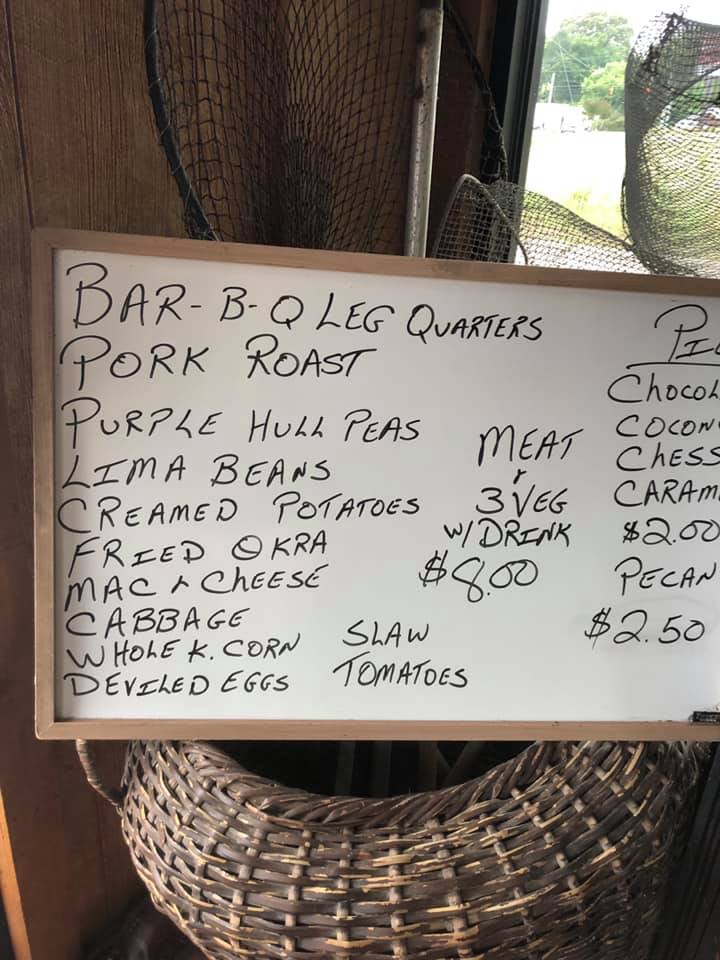 BAR-B-Q LEG QUARTERS
PORK ROAST
PURPLE HULL PEAS
LIMA BEANS
CREAMED POTATOES
FRIED OKRA
MAC & CHEESE
CABBAGE
WHOLE K. CORN
DEVILED EGGS
SLAW
TOMATOES
MEAT
&
3 VEG
W/ DRINK
$8.00
PIE
CHOCOL
COCON
CHESS
CARAM
$2.00
PECAN
$2.50